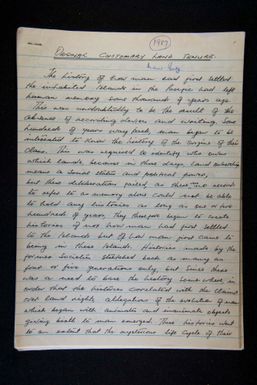 1987
DEDONAL CUSTOMARY LAND TENURE
The history of how man had first settled
the inhabited Islands in the Pacific had left
human memory some thousands of years ago.
This was undoubtedly to be the result of the
absence of recording devices and writing. Some
hundreds of years way back, man began to be
interested to know the history of the origins of their
clans. This was required to identify who owns
which lands because in those days land ownership
means a social status and political power,
but these deliberation parties as they had no record
to refer to as memory alone could not be able
to hold any histories as long as one or two
hundreds of years. They therefore began to create
histories of not how man had first settled
to the Islands but of how man first came to
being in these Islands. Histories made by the
former societies stretched back as many as
four or five generations only, but since there
was a need to base the history somewhere in
order that the histories correlated with the claims
over land rights, allegations of the evolution of man
which began with animate and inanimate objects
giving birth to man emerged. These histories went
to an extent that the mysterious life cycle of their